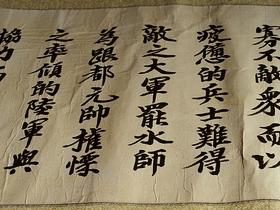 寡不敵衆而以
疲憊的兵士難得
敵之大軍罷水師
為跟都元帥權慄
之率傾的陸軍與
協力